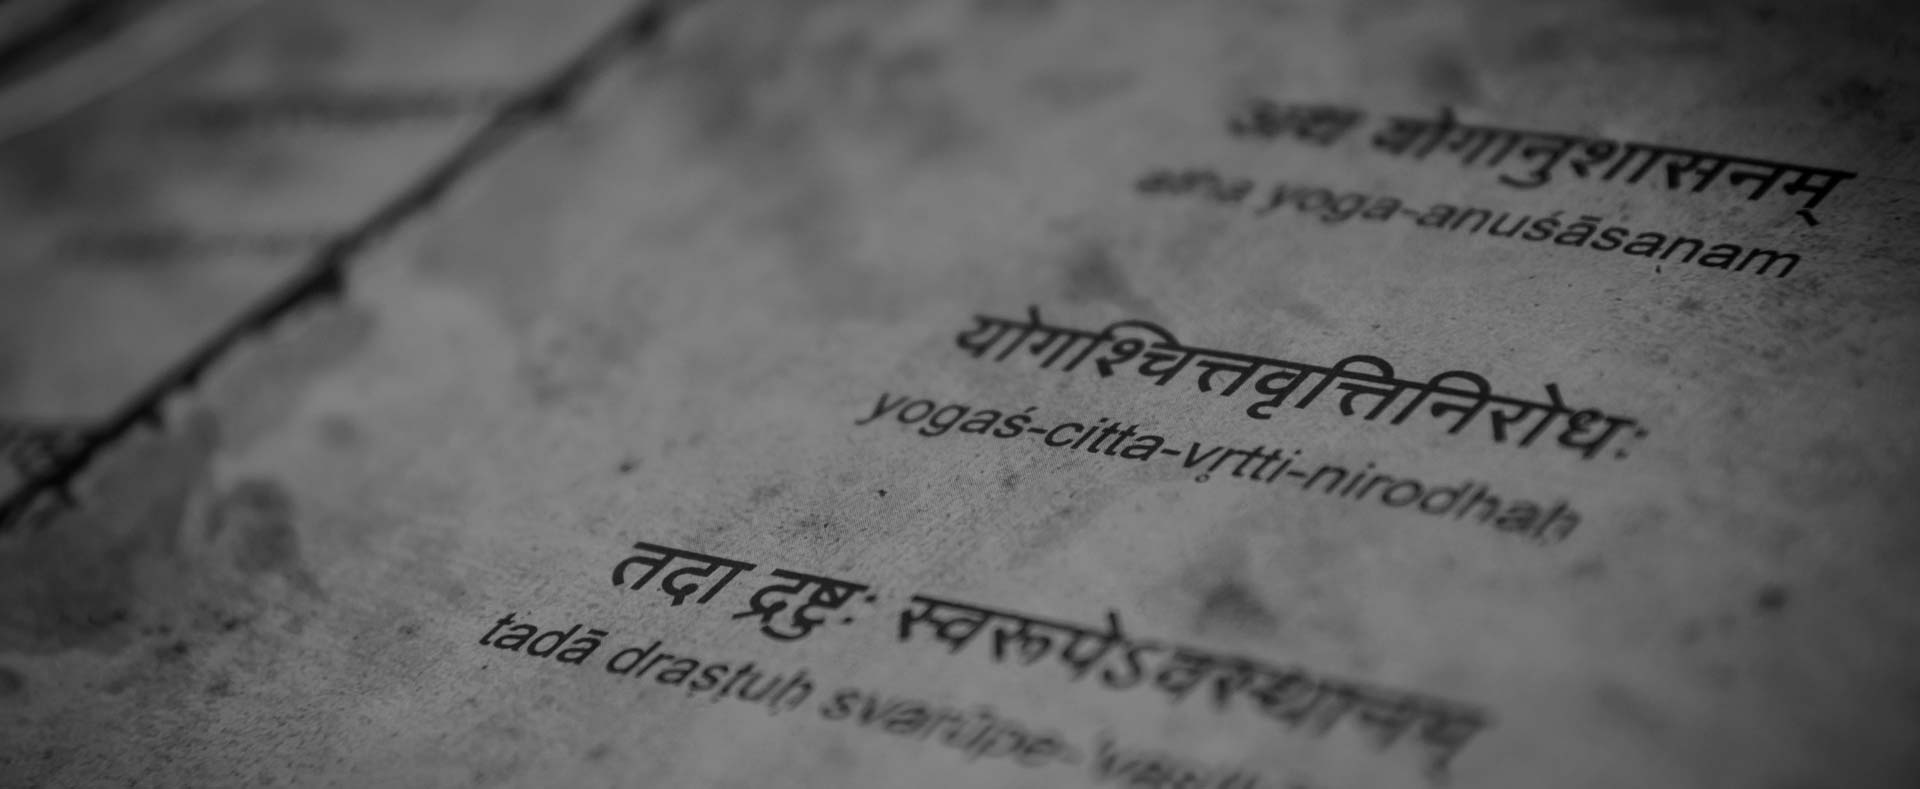 अथ योगानुशासनम्
atha yoga-anuśāsaṇam
योगश्चित्तवृत्तिनिरोधः
yogaś-citta-vṛtti-nirodhaḥ
तदा द्रष्टुः स्वरूपेऽवस्थानम्
tadā draṣṭuḥ svarūpe-